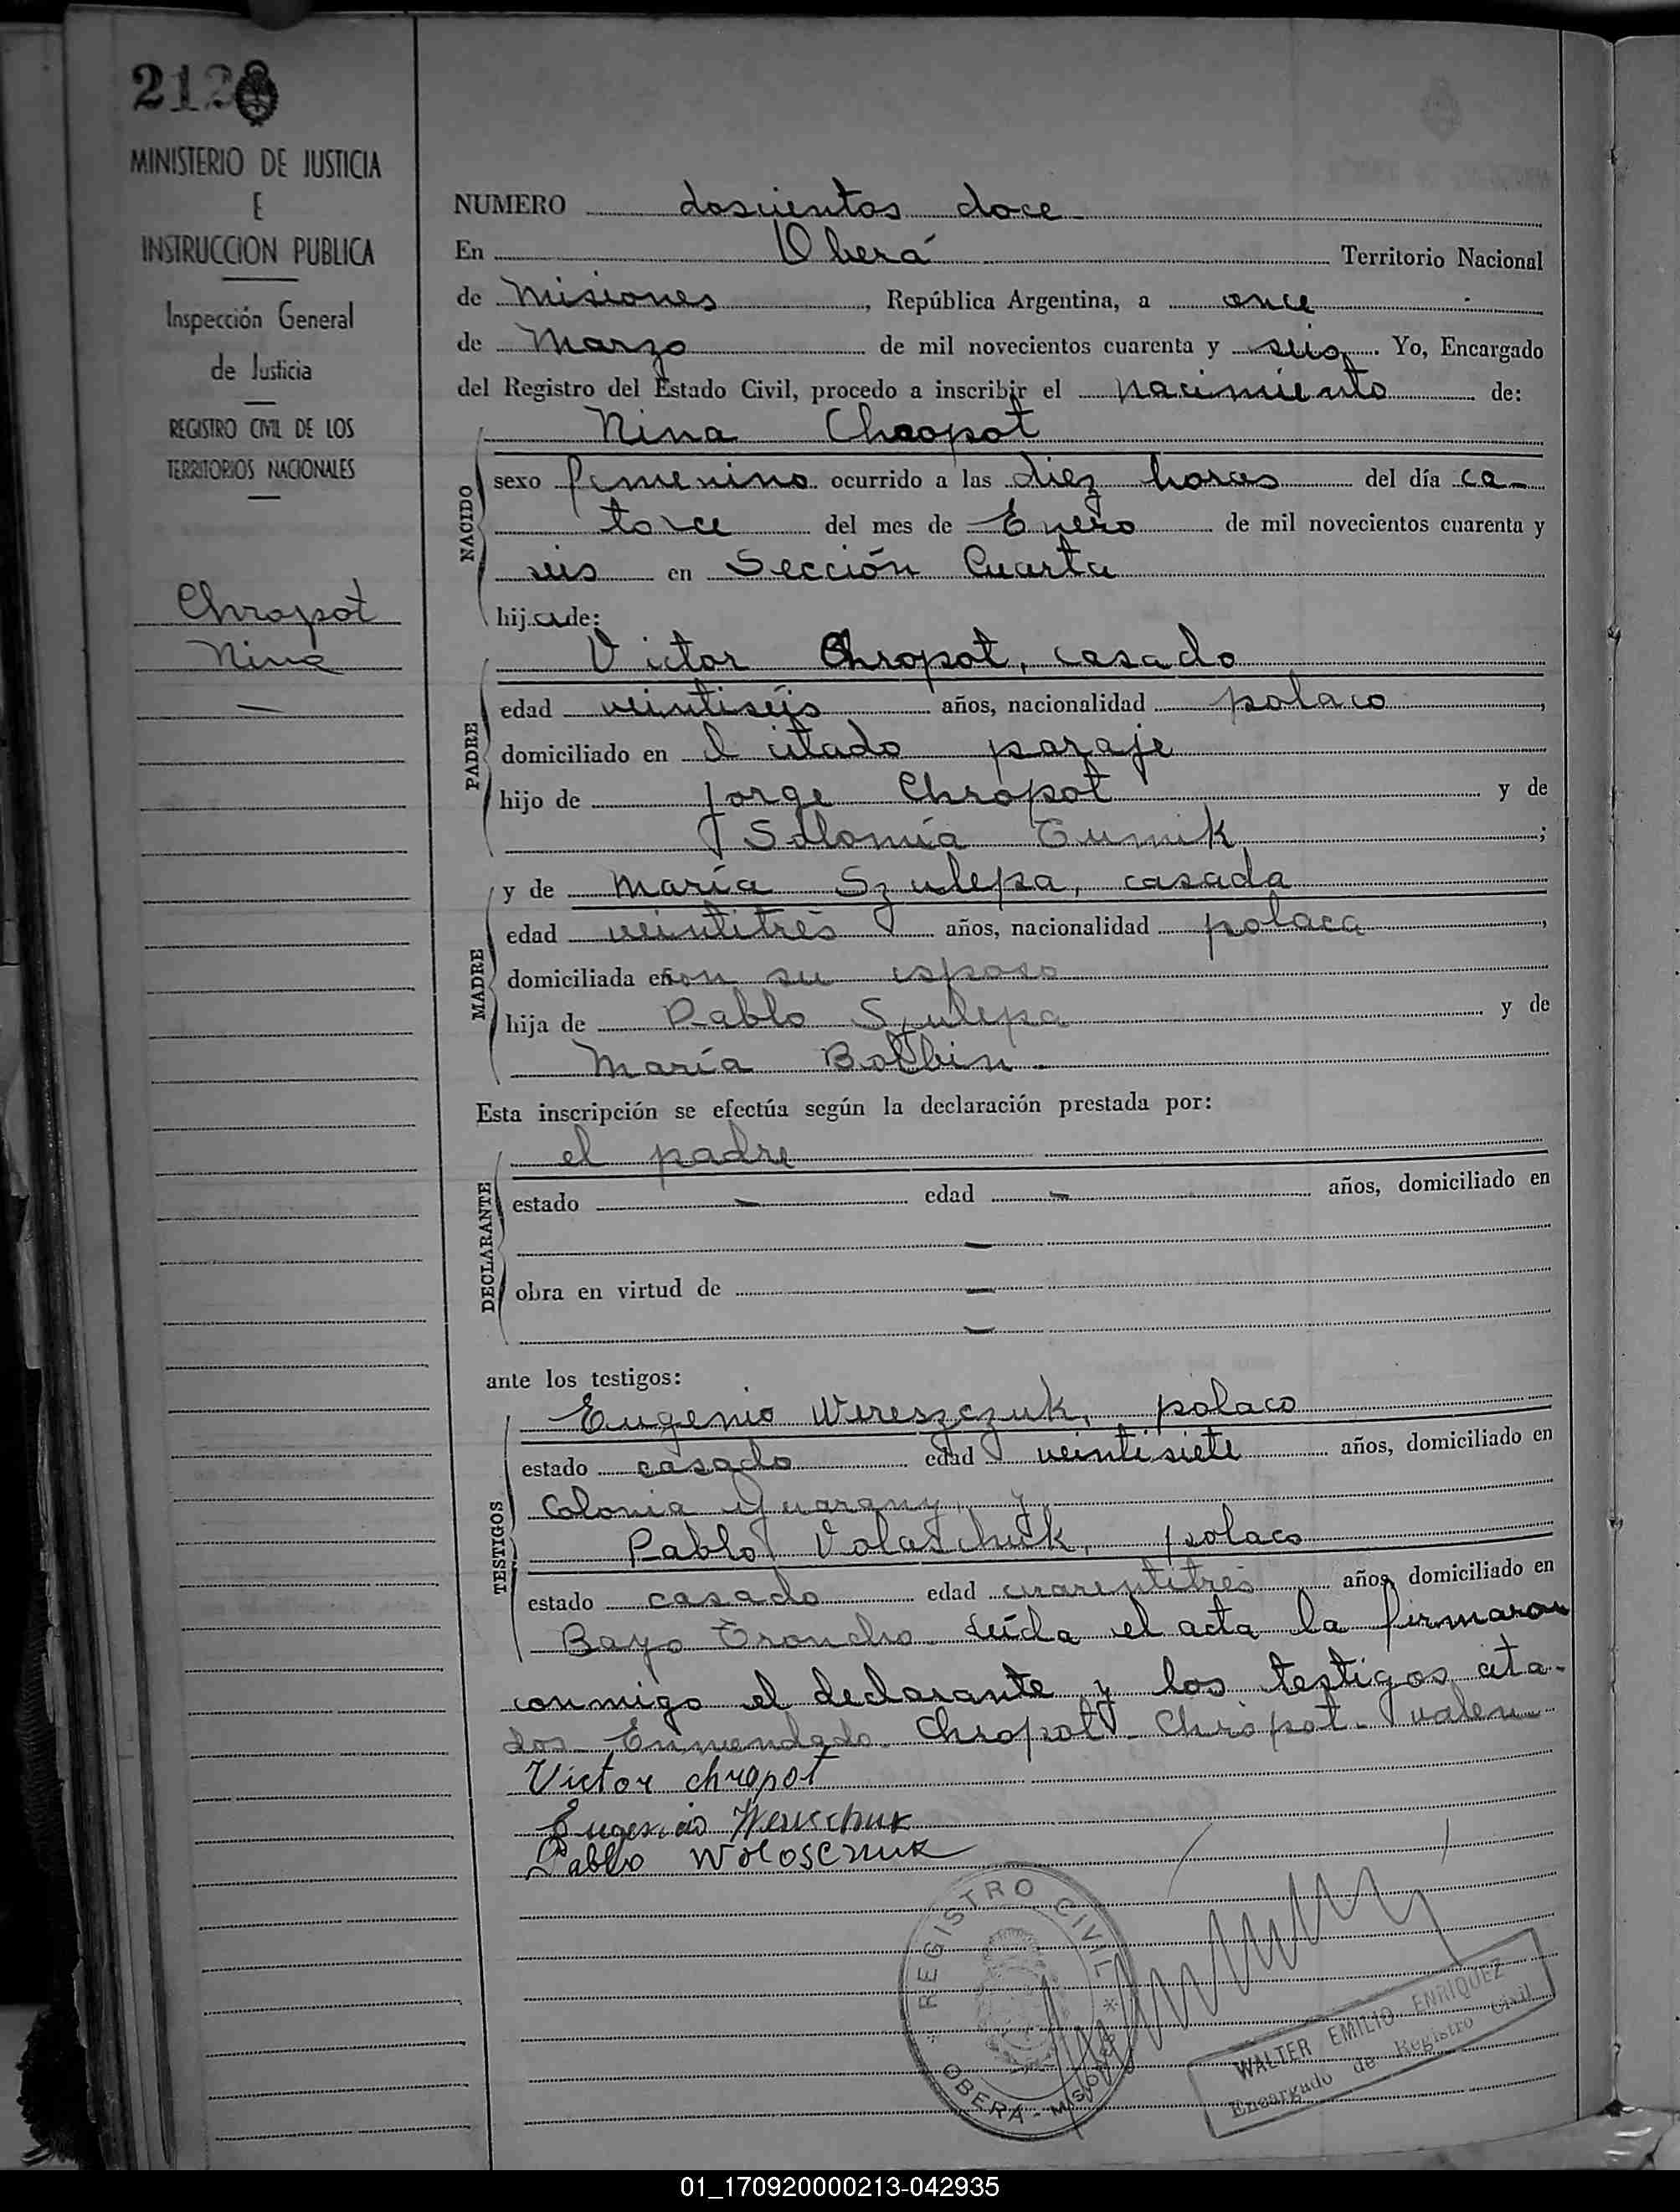 212
MINISTERIO DE JUSTICIA
E
INSTRUCCION PUBLICA
Inspección General
de Justicia
REGISTRO CIVIL DE LOS
TERRITORIOS NACIONALES
Chropot
Nina
—
NUMERO doscientos doce
En Oberá Territorio Nacional
de Misiones, República Argentina, a once
de Marzo de mil novecientos cuarenta y seis. Yo, Encargado
del Registro del Estado Civil, procedo a inscribir el nacimiento de:
Nina Chropot
NACIDO
sexo femenino ocurrido a las diez horas del día ca-
torce del mes de Enero de mil novecientos cuarenta y
seis en Sección Cuarta
hija de:
Victor Chropot, casado
PADRE
edad veintiséis años, nacionalidad polaco,
domiciliado en el citado paraje
hijo de Jorge Chropot y de
Salomía;
y de María Szulepa, casada
MADRE
edad veintitrés años, nacionalidad polaca,
domiciliada en con su esposo
hija de Pablo Szulepa y de
María
Esta inscripción se efectúa según la declaración prestada por:
el padre
DECLARANTE
estado — edad — años, domiciliado en
—
obra en virtud de —
—
ante los testigos:
Eugenio Wereszczuk, polaco
TESTIGOS
estado casado edad veintisiete años, domiciliado en
Colonia Guarany, y
Pablo Volaschuk, polaco
estado casado edad cuarentitrés años, domiciliado en
Bayo Troncho. Leída el acta la firmaron
conmigo el declarante y los testigos cita-
dos. Enmendado. Chropot - Chropot. valen
Victor chropot
Eugenio
Pablo Woloscznuk
* REGISTRO CIVIL *
OBERA - MISIONES
WALTER EMILIO ENRIQUEZ
Encargado de Registro Civil
01_170920000213-042935